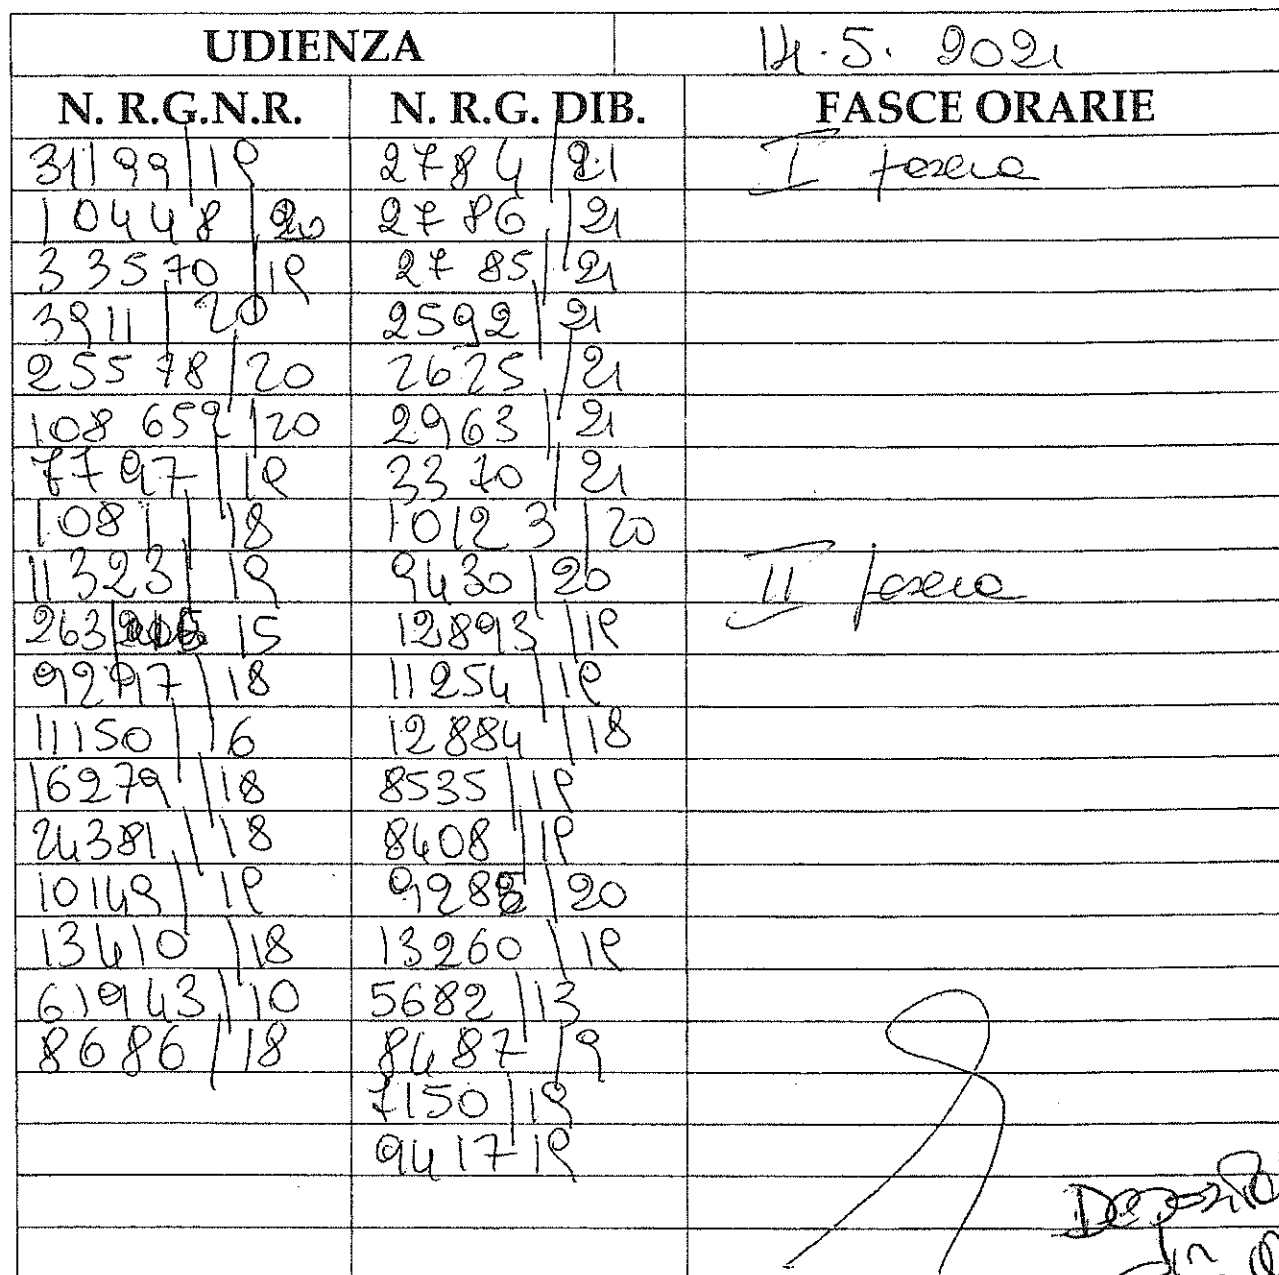 UDIENZA 14.5.2021
N. R.G.N.R. N. R.G. DIB. FASCE ORARIE
31199/19 2784/21 I fascia
10448/20 2786/21
33570/19 2785/21
3911/20 2592/21
25578/20 2625/21
108659/20 2963/21
7797/19 3370/21
1081/18 10123/20
11323/19 9430/20 II fascia
263 15 12893/19
92797/18 11254/19
11150/16 12884/18
16279/18 8535/19
24381/18 8408/19
10149/19 9285/20
13410/18 13260/19
61943/10 5682/13
8686/18 8487/19
7150/19
9417/19